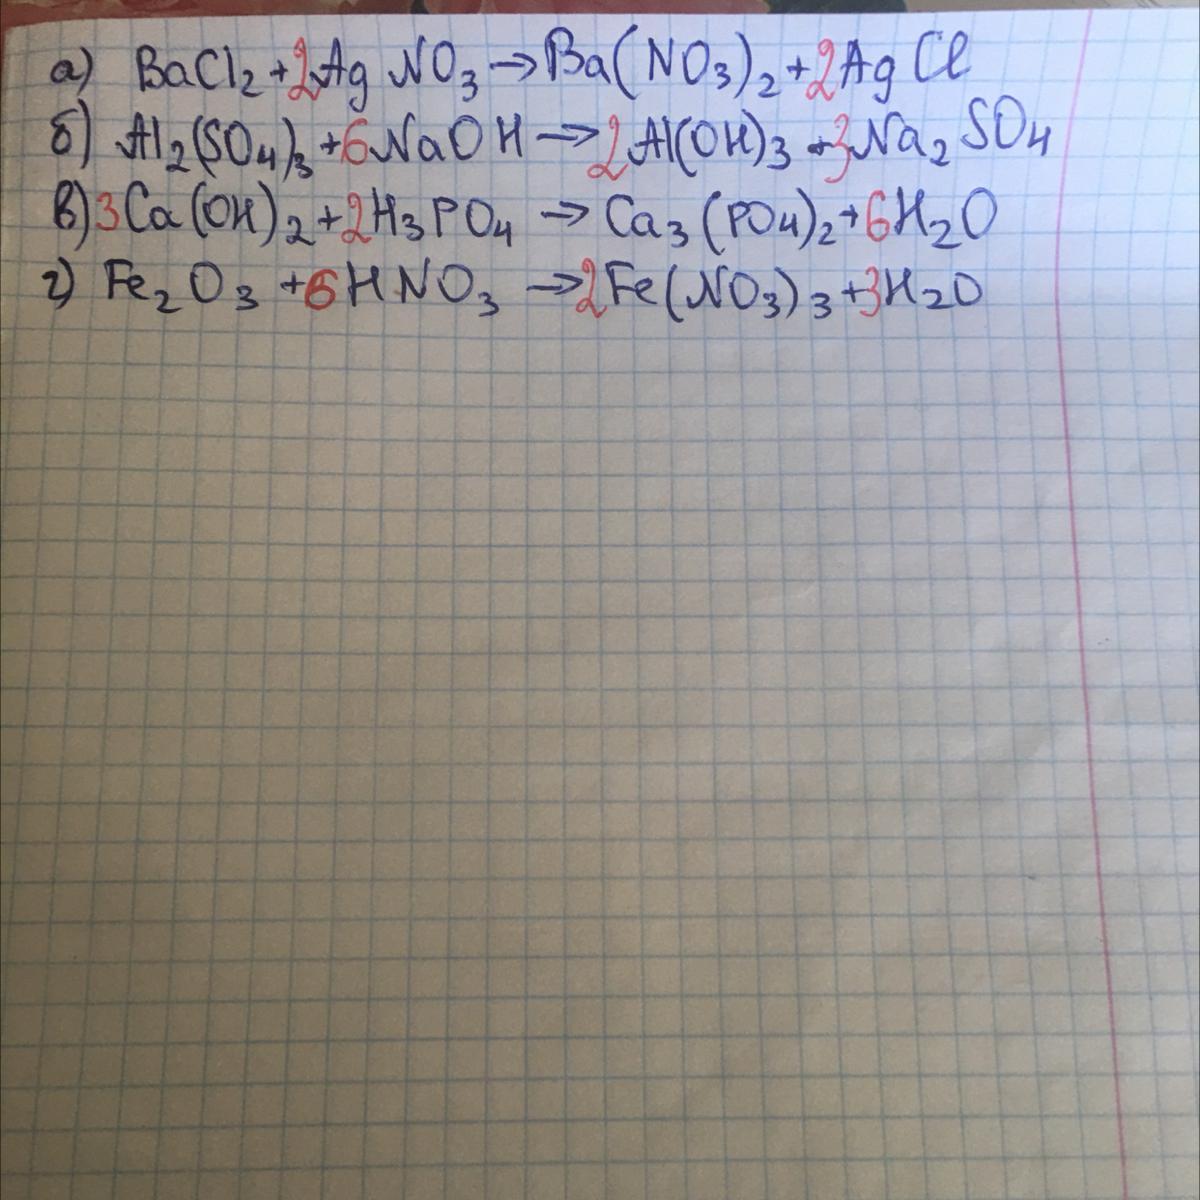 а) BaCl₂ + 2AgNO₃ → Ba(NO₃)₂ + 2AgCl
б) Al₂(SO₄)₃ + 6NaOH → 2Al(OH)₃ + 3Na₂SO₄
в) 3Ca(OH)₂ + 2H₃PO₄ → Ca₃(PO₄)₂ + 6H₂O
г) Fe₂O₃ + 6HNO₃ → 2Fe(NO₃)₃ + 3H₂O